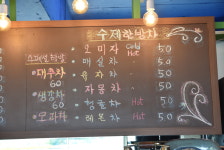 수제한방차
오미자 Cold Hot 50
매실차 50
유자차 50
자몽차 50
Hot 50
레몬차 Hot 50
대추차
60
생강차
60
모과차